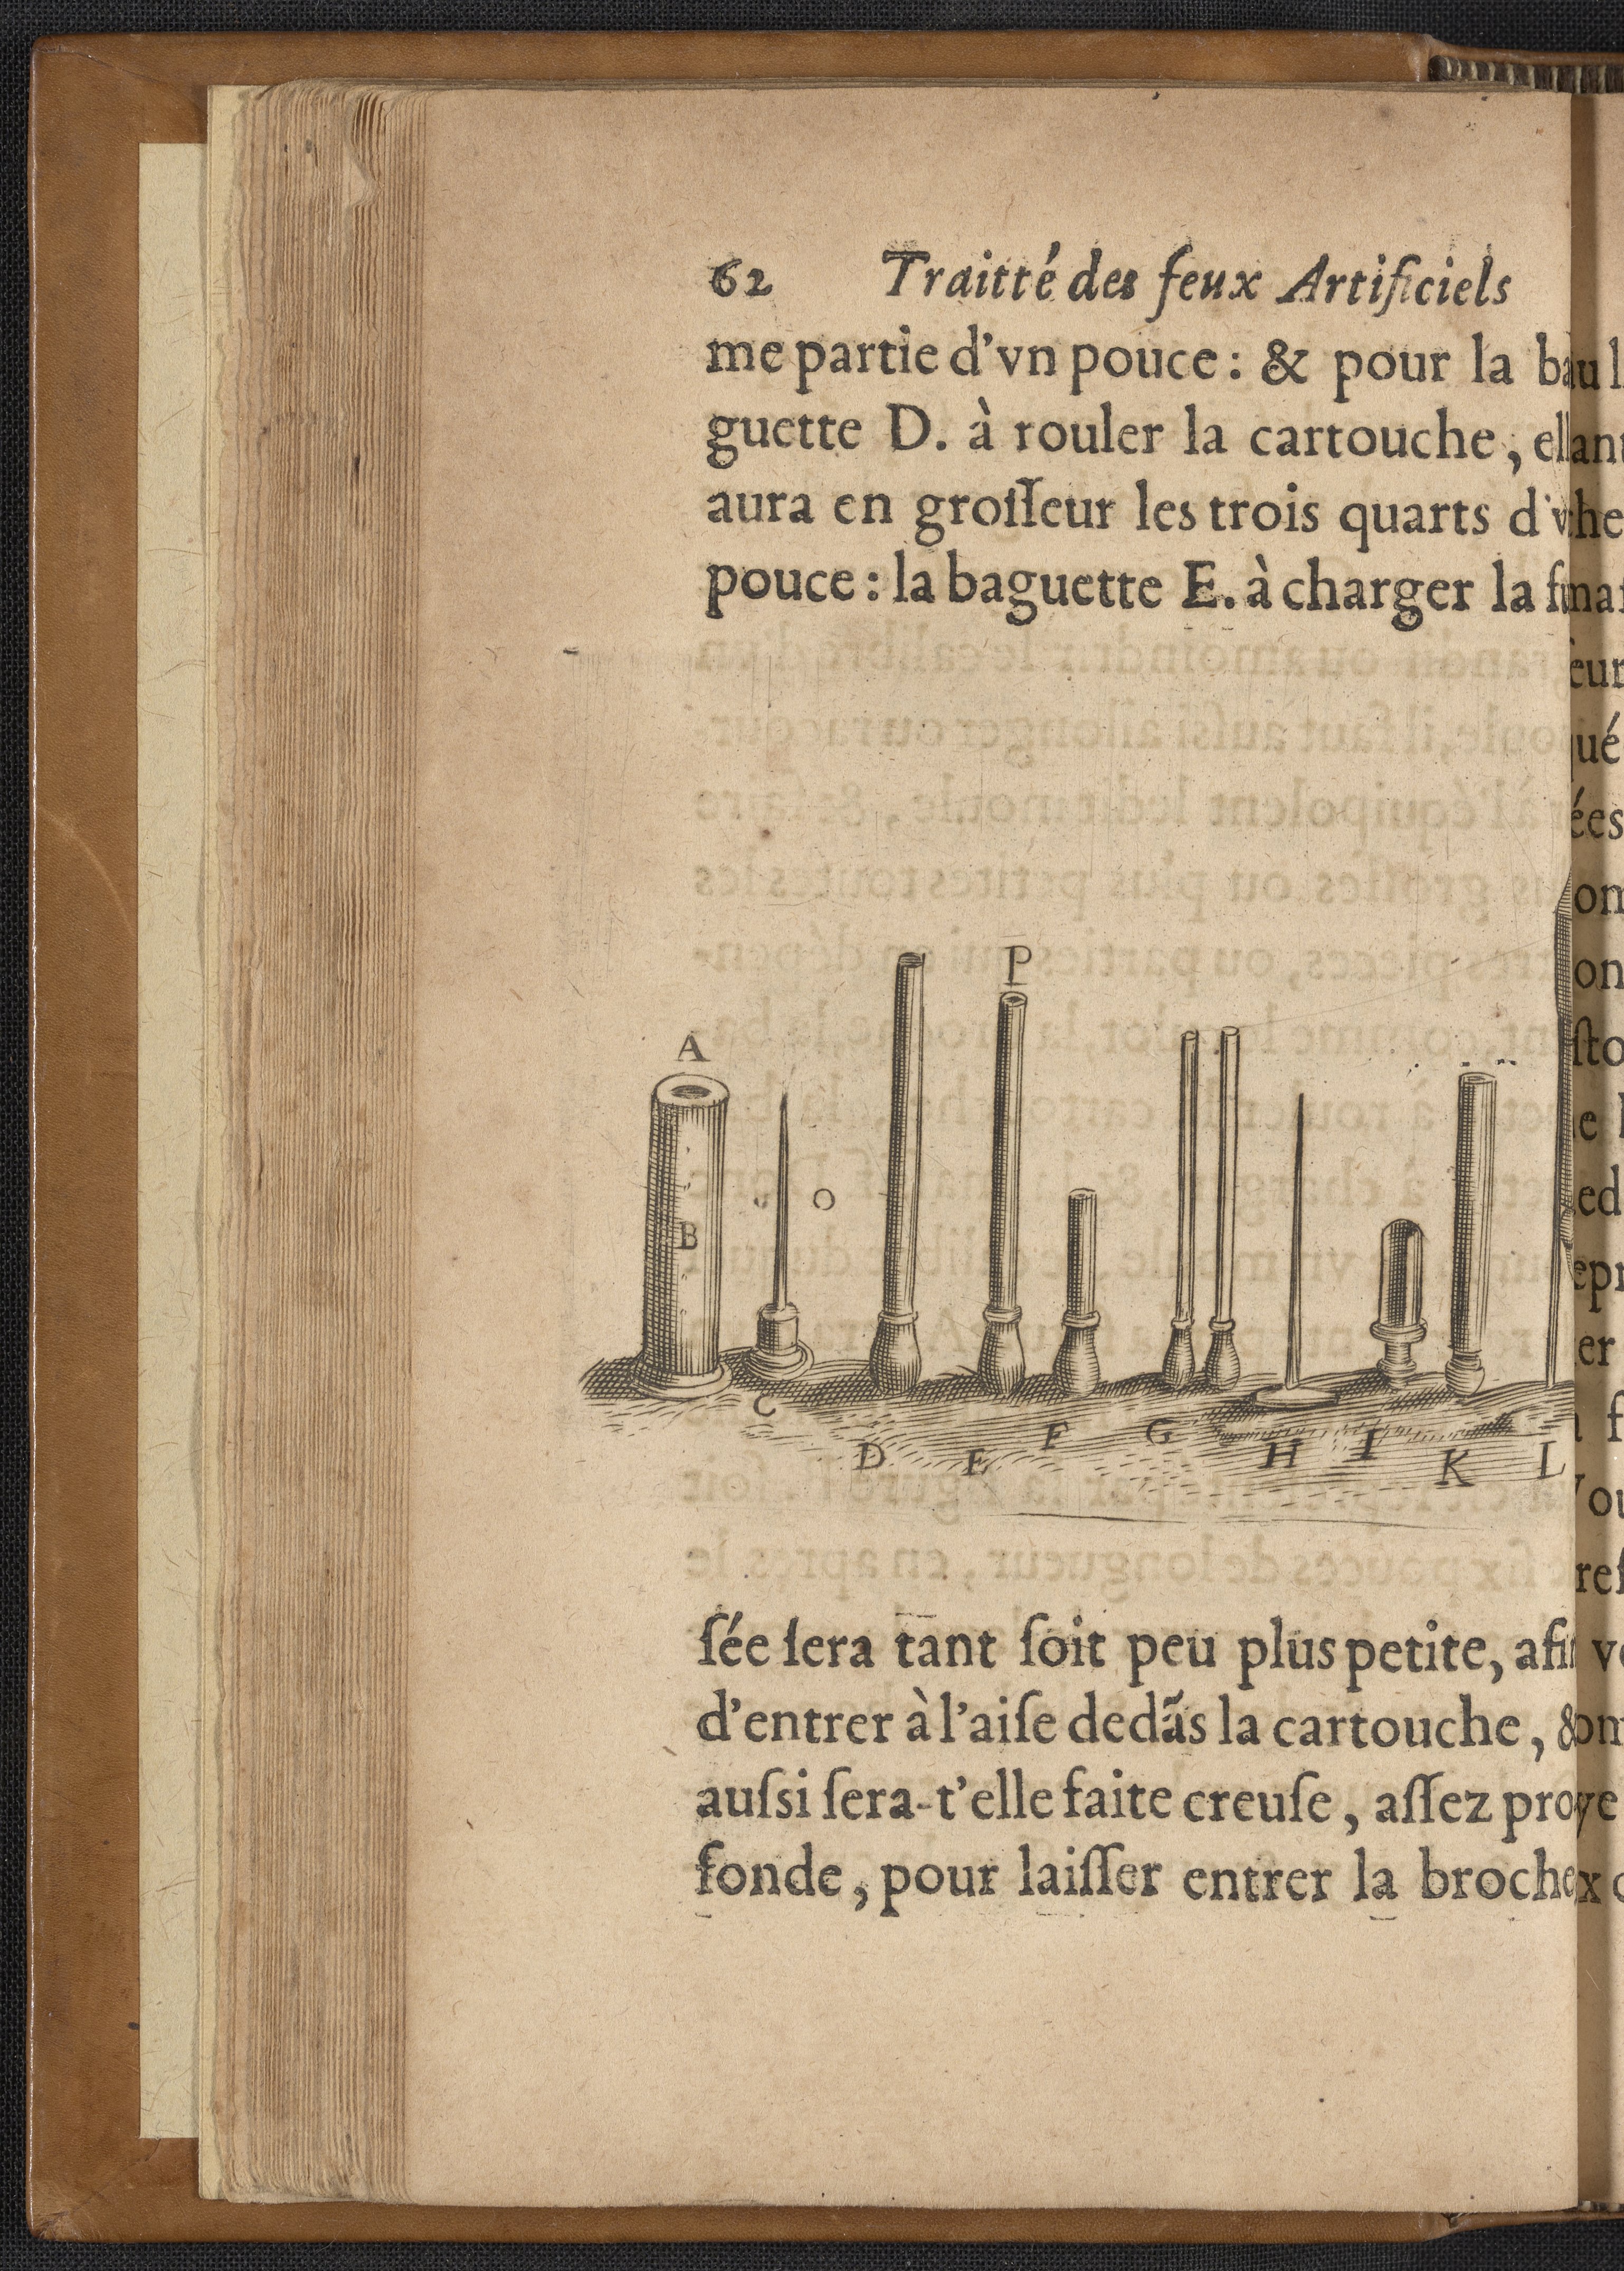 62 Traitté des feux Artificiels
me partie d'vn pouce : & pour la ba
guette D. à rouler la cartouche, el
aura en groſſeur les trois quarts d'v
pouce : la baguette E. à charger la fu
P
A
O
B
C
D E F G H I K L
ſée ſera tant ſoit peu plus petite, afin
d'entrer à l'aiſe dedãs la cartouche, &
auſsi ſera-t'elle faite creuſe, aſſez pro
fonde, pour laiſſer entrer la broche